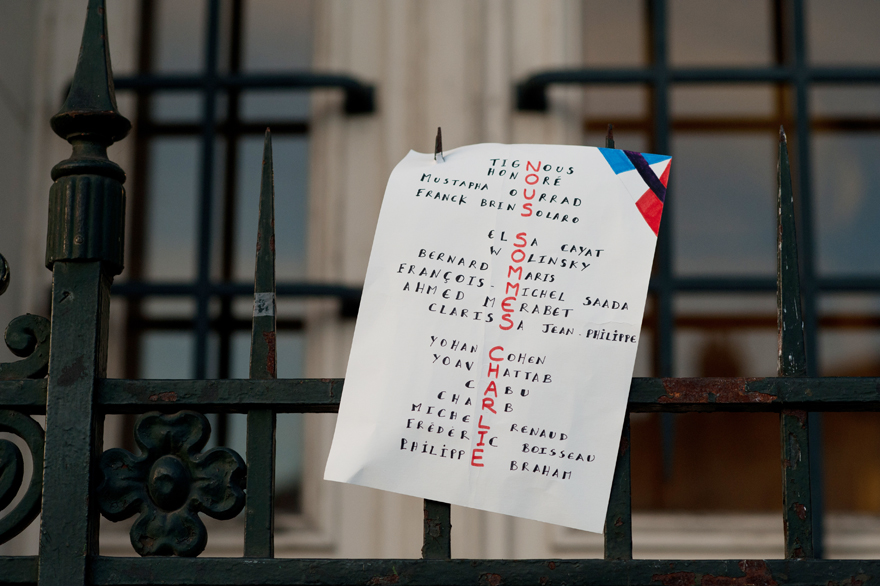 TIGNOUS
HONORÉ
MUSTAPHA OURRAD
FRANCK BRINSOLARO
ELSA CAYAT
WOLINSKY
BERNARD MARIS
FRANÇOIS-MICHEL SAADA
AHMED MERABET
CLARISSA JEAN-PHILIPPE
YOHAN COHEN
YOAV HATTAB
CABU
CHARB
MICHEL RENAUD
FRÉDÉRIC BOISSEAU
PHILIPPE BRAHAM